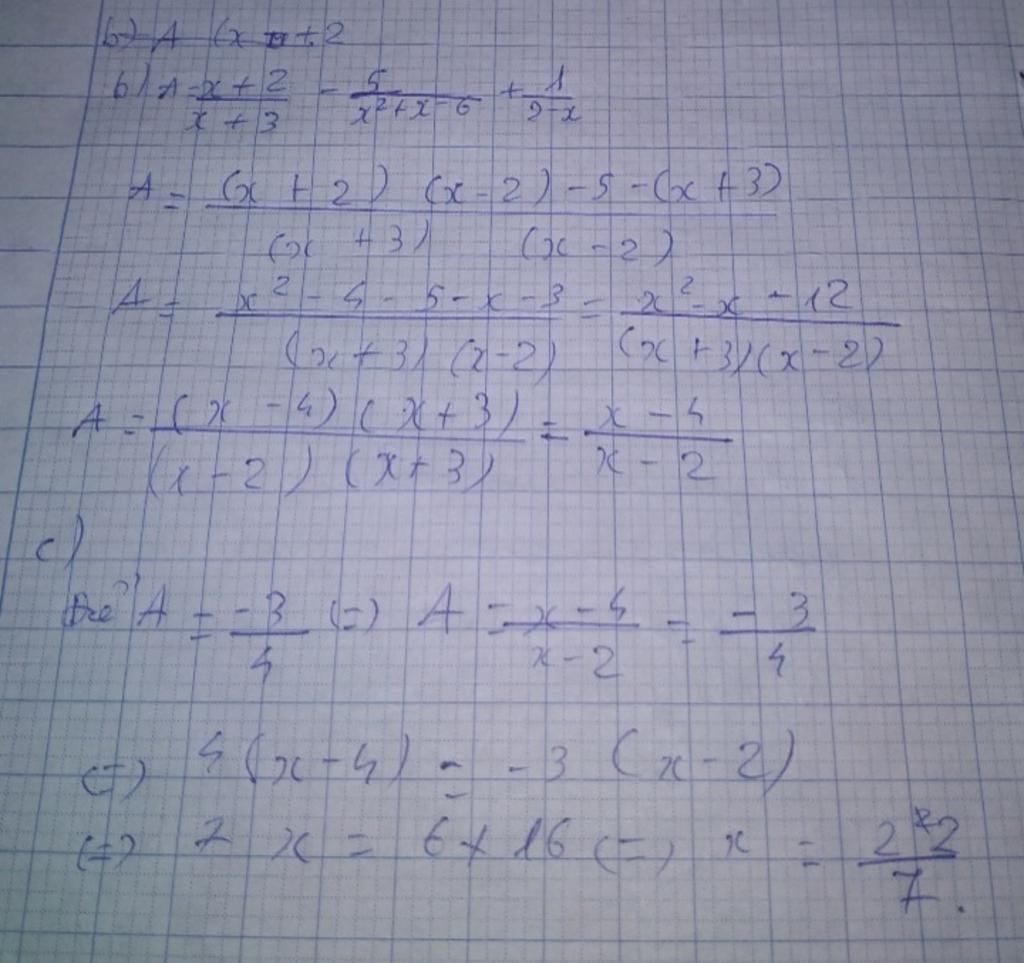 b) A (x + 2
b) A = x + 2 / x + 3 - 5 / x² + x - 6 + 1 / 2 - x
A = (x + 2) (x - 2) - 5 - (x + 3) / (x + 3) (x - 2)
A = x² - 4 - 5 - x - 3 / (x + 3) (x - 2) = x² - x - 12 / (x + 3) (x - 2)
A = (x - 4) (x + 3) / (x - 2) (x + 3) = x - 4 / x - 2
c)
Để A = -3 / 4 (=) A = x - 4 / x - 2 = - 3 / 4
(=) 4 (x - 4) = - 3 (x - 2)
(=) 7 x = 6 + 16 (=) x = 22 / 7.